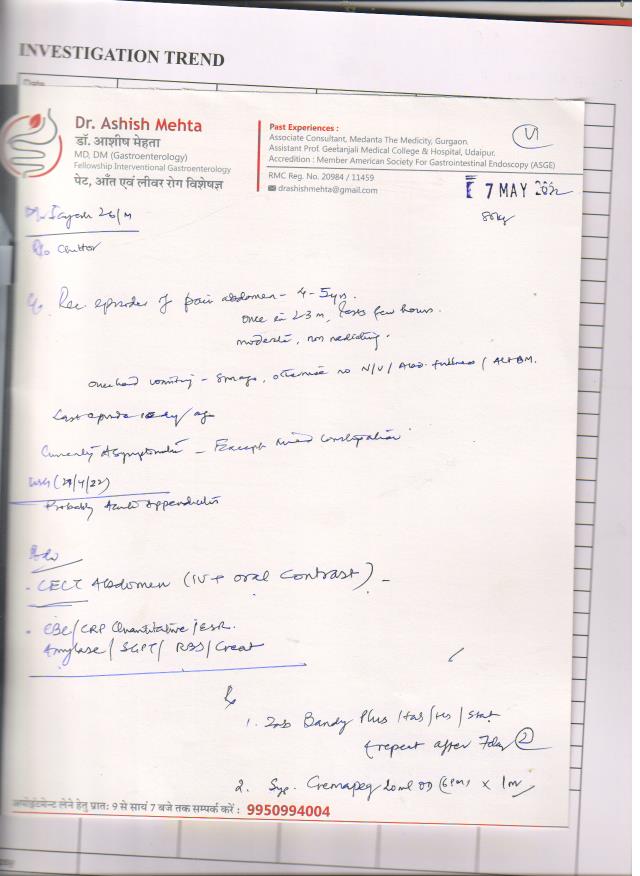 INVESTIGATION TREND
Dr. Ashish Mehta
डॉ. आशीष मेहता
MD, DM (Gastroenterology)
Fellowship Interventional Gastroenterology
पेट, आँत एवं लीवर रोग विशेषज्ञ
Past Experiences :
Associate Consultant, Medanta The Medicity, Gurgaon.
Assistant Prof. Geetanjali Medical College & Hospital, Udaipur.
Accredition : Member American Society For Gastrointestinal Endoscopy (ASGE)
RMC Reg. No. 20984 / 11459
drashishmehta@gmail.com
7 MAY 2022
26/M
Rec episodes of pain abdomen - 4-5yrs.
once in 2-3 m, lasts few hours.
moderate, non radiating.
once had vomiting - 5 yr ago, otherwise no N/V/ Abd. fullness / Alt BM.
Last episode 10 day ago
Currently Asymptomatic - Except mild constipation
(29/4/22)
Probably Acute Appendicitis
Adv
- CECT Abdomen (IV + oral contrast) -
- CBC/ CRP Quantitative / ESR.
Amylase/ SGPT/ RBS/ Creat
Rx
1. Tab Bandy Plus 1tab / HS / stat
& repeat after 7day (2)
2. Syp. Cremapeg 20ml OD (6pm) x 1m
अपोईंटमेन्ट लेने हेतु प्रातः 9 से सायं 7 बजे तक सम्पर्क करें : 9950994004